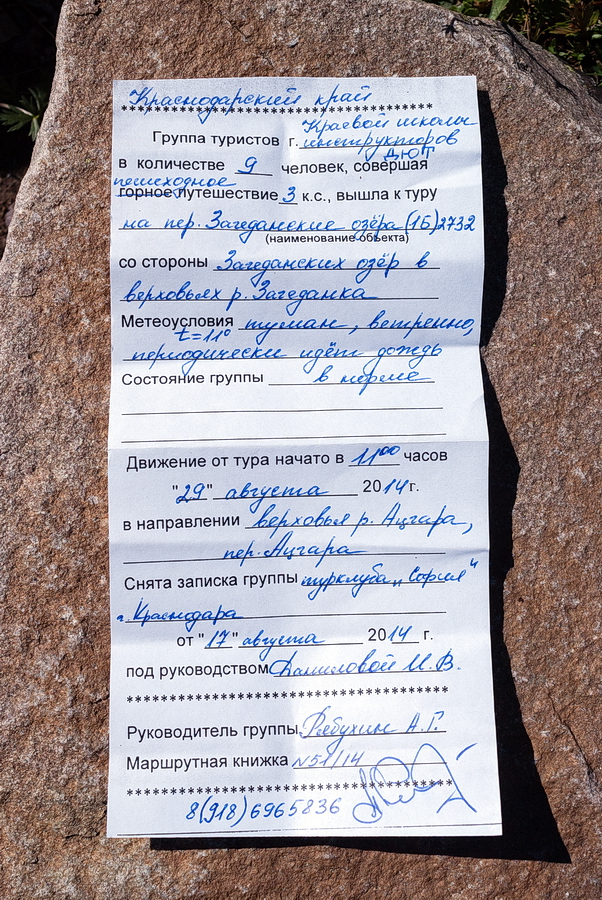 Краснодарский край
**********************************
Краевой школы
Группа туристов г. инструкторов
ДЮТ
в количестве 9 человек, совершая
пешеходное
горное путешествие 3 к.с., вышла к туру
на пер. Загеданские озёра (1Б) 2732
(наименование объекта)
со стороны Загеданских озёр в
верховьях р. Загеданка
Метеоусловия туман, ветренно,
t=11°
периодически идёт дождь
Состояние группы в норме
Движение от тура начато в 11⁰⁰ часов
"29" августа 2014г.
в направлении верховья р. Ацгара,
пер. Ацгара
Снята записка группы турклуба „София"
г. Краснодара
от "17" августа 2014 г.
под руководством Даниловой И. В.
**********************************
Руководитель группы Рябухин А. Г.
Маршрутная книжка №51/14
**********************************
8(918)6965836